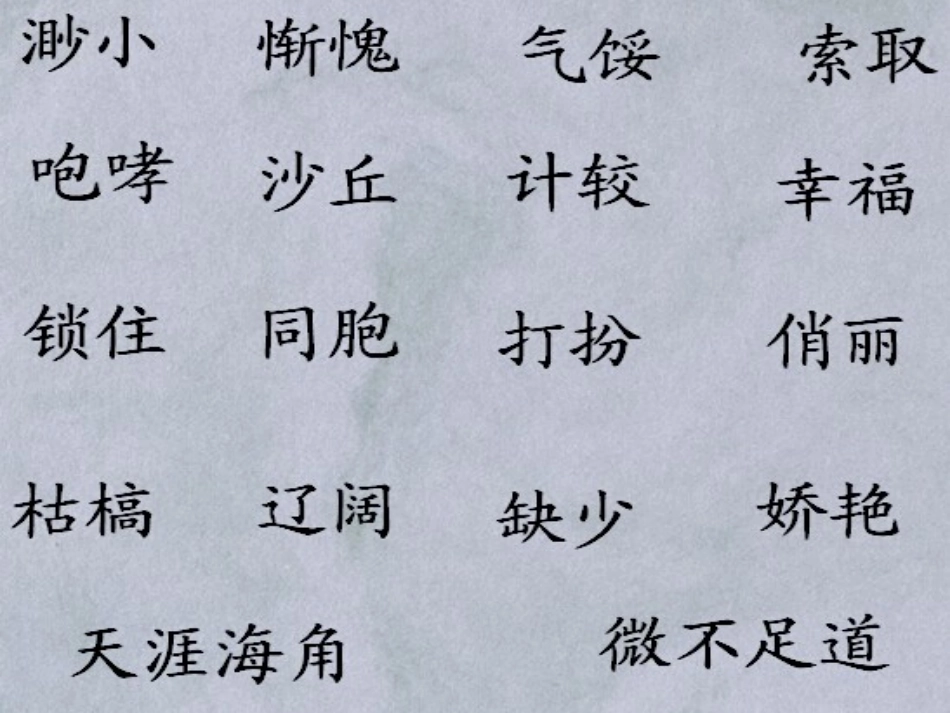 渺小 惭愧 气馁 索取
咆哮 沙丘 计较 幸福
锁住 同胞 打扮 俏丽
枯槁 辽阔 缺少 娇艳
天涯海角 微不足道